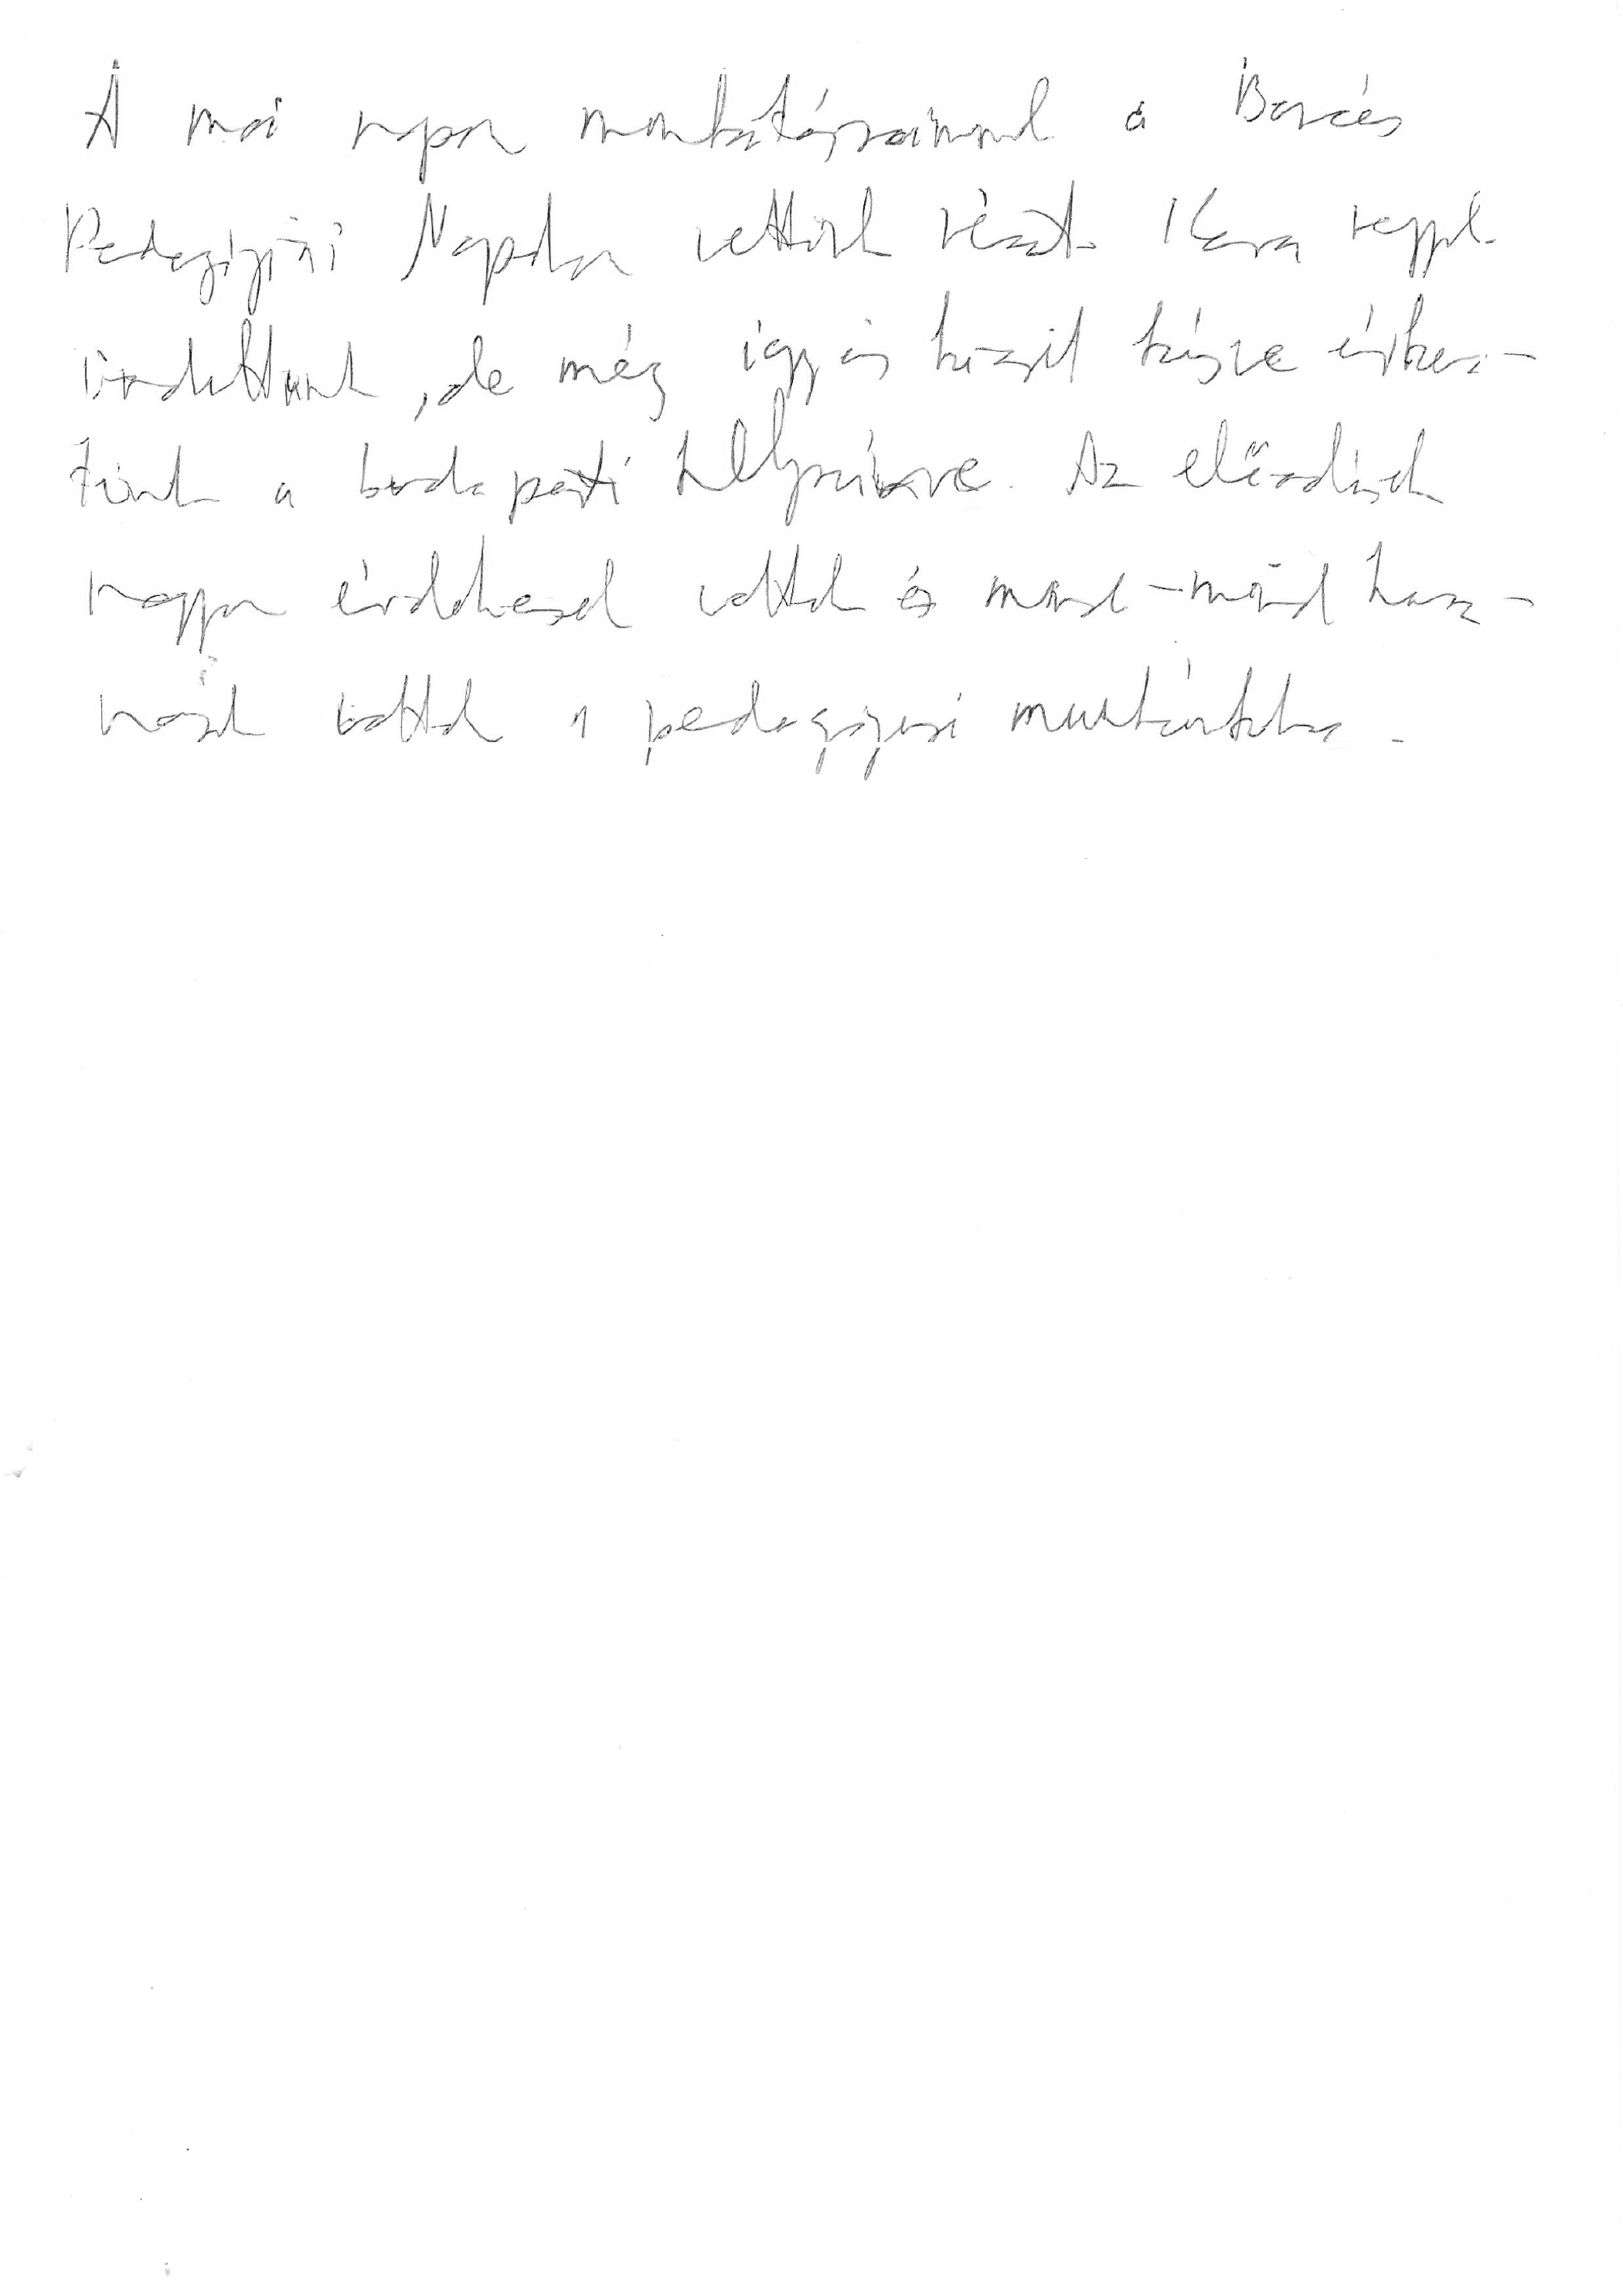 A mai napon munkatársaimmal a Bárczis
Pedagógiai Napokon vettünk részt. Kora reggel
indultunk, de még így is kicsit késve érkez-
tünk a budapesti helyszínre. Az előadások
nagyon érdekesek voltak és mind-mind hasz-
nosak voltak a pedagógusi munkánkhoz.